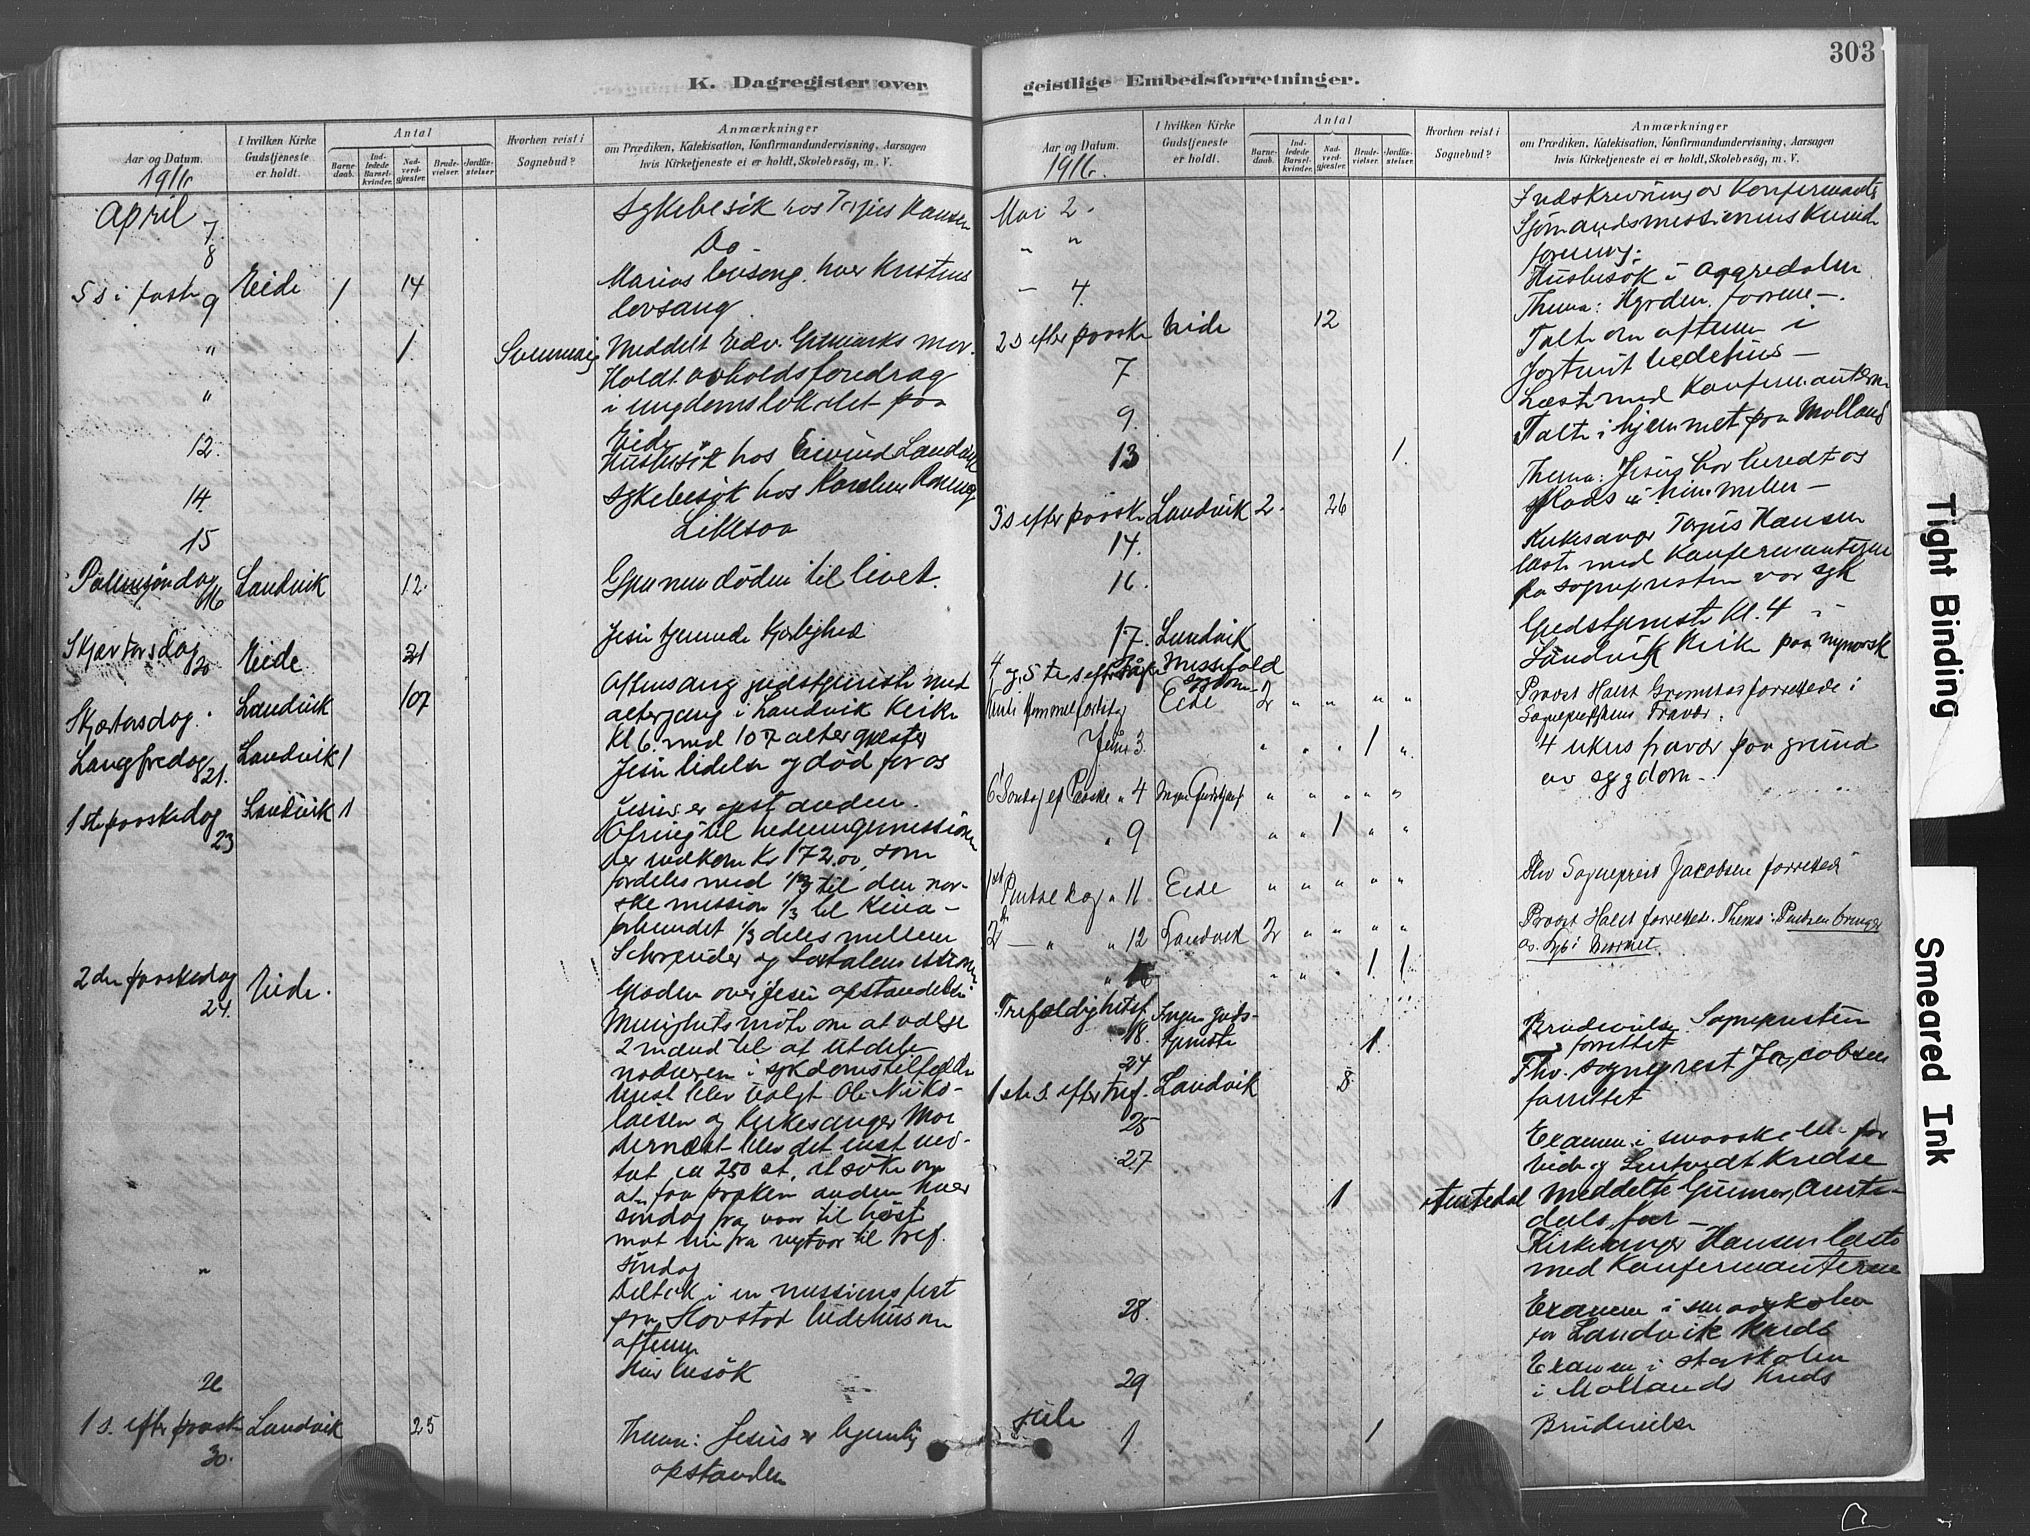 303
K. Dagregister over
geistlige Embedsforretninger.
Aar og Datum.
1916.
I hvilken Kirke
Gudstjeneste
er holdt.
Antal
Barne-
daab.
Ind-
ledede
Barsel-
kvinder.
Nad-
verd-
gjæster.
Brude-
vielser.
Jordfæ-
stelser
Hvorhen reist i
Sognebud?
Anmærkninger
om Prædiken, Katekisation, Konfirmandundervisning, Aarsagen
hvis Kirketjeneste ei er holdt, Skolebesög, m. V.
April 7 Sykebesök hos Terjus Hansen
8 Do
5 s i faste 9 Eide 1 14 Marias lovsang, hver kristens
lovsang
" 1. Meddelt Edv. Gitmarks mor.
" Holdt avholdsforedrag
i ungdomslokalet paa
Eide
12. Husbesök hos Eivind Landvik
14. Sykebesök hos
15 Likesaa
Palmesøndag 16 Landvik 12. Gjennem döden til livet.
Skjærtorsdag 20 Eide 21 Jesu tjenende kjærlighed
Skjærtorsdag. Landvik 107 Aftensang gudstjeneste med
altergang i Landvik Kirke
Kl 6. med 107 altergjester
Langfredag 21. Landvik 1 Jesu lidelse og død for os
1ste paaskedag 23 Landvik 1 Jesus er opstanden.
Ofring til hedningemissionen
Der indkom Kr 172.00, som
fordeles med 1/3 til den nor-
ske mission 1/3 til Kina-
forbundet 1/3 deles mellem
Schreuder og Santalmissionen
2den paaskedag 24. Eide. Glæden over Jesu opstandelse
Menighetsmöte om at vælge
2 mænd til at utdele
nadveren i sykdomstilfælde
Hvest blev valgt Ole Niko-
laisen og Kirkesanger Moe
Dernæst blev det enst ved-
tat ca 250 st. at söke om
at faa præken anden hver
søndag fra vaar til höst
mot nu fra nytaar til Tref.
Söndag
" Deltok i en missionsfest
paa Hovstad bedehus om
aftenen
26 Husbesök
1 s. efter paaske 30. Landvik 25 Thema: Jesus er legemlig
opstanden
Aar og Datum.
1916.
I hvilken Kirke
Gudstjeneste
er holdt.
Antal
Barne-
daab.
Ind-
ledede
Barsel-
kvinder.
Nad-
verd-
gjæster.
Brude-
vielser.
Jordfæ-
stelser
Hvorhen reist i
Sognebud?
Anmærkninger
om Prædiken, Katekisation, Konfirmandundervisning, Aarsagen
hvis Kirketjeneste ei er holdt, Skolebesög, m. V.
Mai 2. Indskrivning av Konfirmanter
" " Sjømandsmissionens Kvinde
forening.
— 4. Husbesök i Aagredalen
2 s efter paaske 7 Eide 12 Thema: Hyrden, faarene —.
Talte om aftenen i
bedehus —
9. Læste med Konfirmanterne
13 1. Talte i hjemmet paa Molland
3 s efter paaske 14. Landvik 2. 26 Thema: Jesus har beredt os
plads i himmelen —
16. Kirkesanger Terjus Hansen
læste med Konfirmanterne
da sognepresten var syk
17. Landvik Gudstjeneste Kl. 4 i
Landvik Kirke paa nynorsk
4 og 5te s efter Paaske Messefald
sygdom
Kristi Himmelfartsdag Eide 2 " " " " Provst Halst Grimstad forrettede i
Sogneprestens Fravær.
Juni 3. " " " 1 " 4 ukers fravær paa grund
av sygdom.
6 Søndag ef Paaske " 4 Ingen Gudstjenst " " " " "
" 9 " " 1 " "
1ste Pintsedag " 11 Eide " " " " " Thv Sogneprest Jacobsen forrettede
2den — " " 12 Landvik 2 " " " " Provst Halst forrettede. Thema: Pintsen bringer
os Lys i Mørket.
" 16 " " " 1 1
Trefoldighetsf. 18. Ingen guds-
tjeneste
24 1. Brudevielse Sognepresten
forrettet
1ste s. efter Tref. 25 Landvik 8 Thv. sogneprest Jacobsen
forrettet
27 Examen i smaaskolen for
Eide og Kredse
1 Austedal Meddelte Gunner Auste-
dals far —
Kirkesanger Hansen læste
med Konfirmanterne
28. Examen i smaaskolen
for Landvik Kreds
29 Examen i storskolen
i Mollands Kreds
Juli 1. 1 Brudevielse
Tight Binding
Smeared Ink